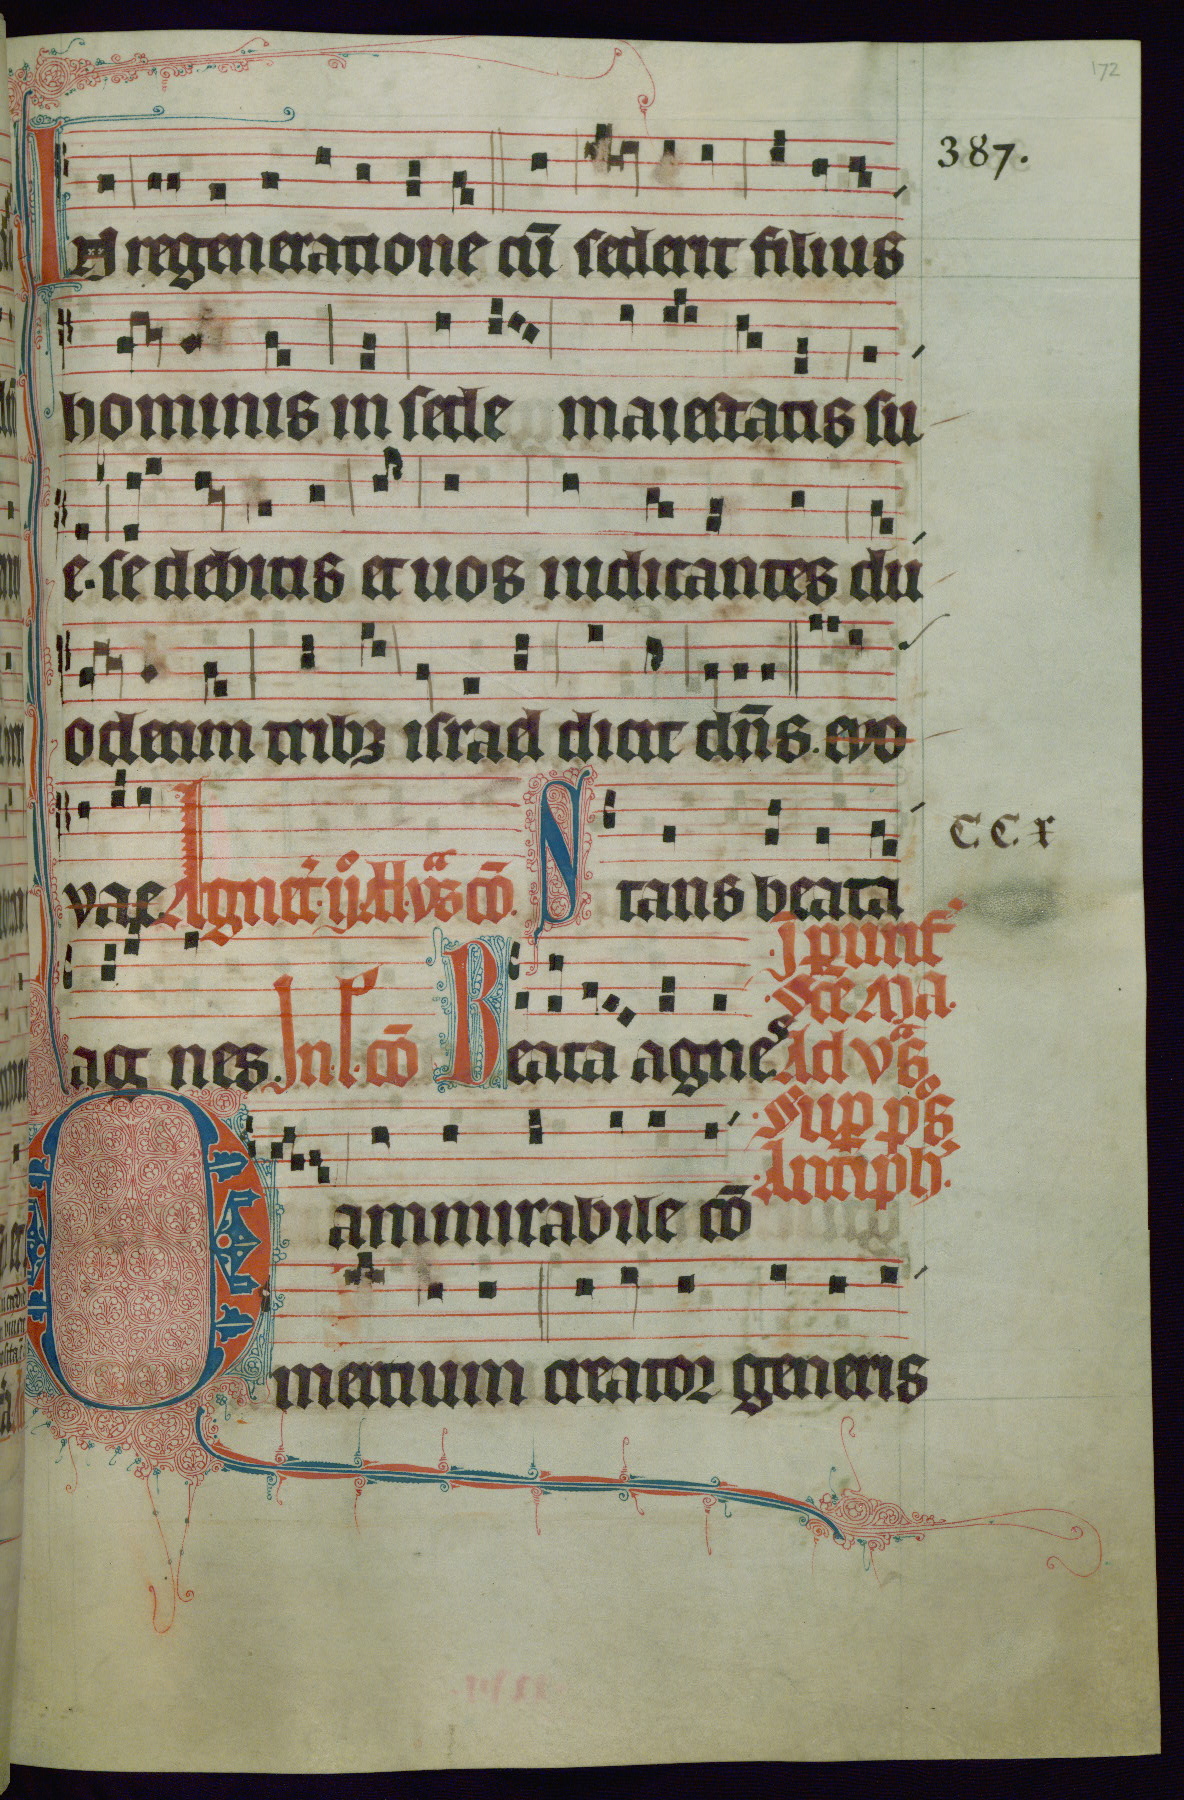 172
387.
IN regeneratione cū sederit filius
hominis in sede maiestatis su
e. se debitis et uos iudicantes du
odecim tribꝫ israel dicit dn̄s. evo
vae. Agnet̄. ij. All. vs̄. cō. Stans beata
CCx
ag nes. In .l. cō Beata agnes
I purif̄
sce Ma.
Ad vs̄
Sup ps̄
Antiph̄.
O ammirabile cō
mercium creator generis